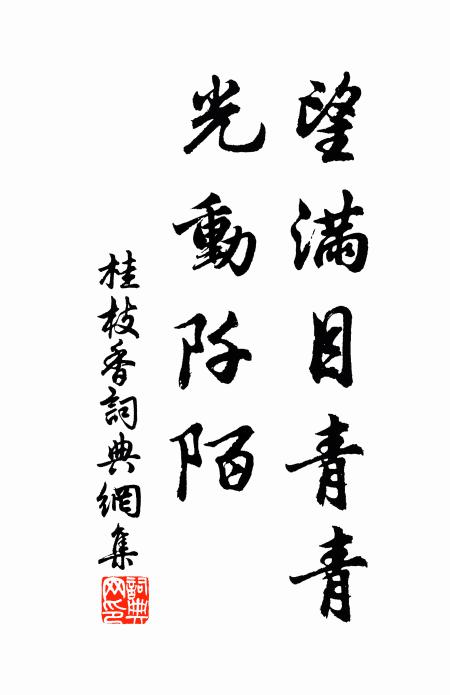 望滿目青青
光動阡陌
桂枝香詞典網集
詞典網印